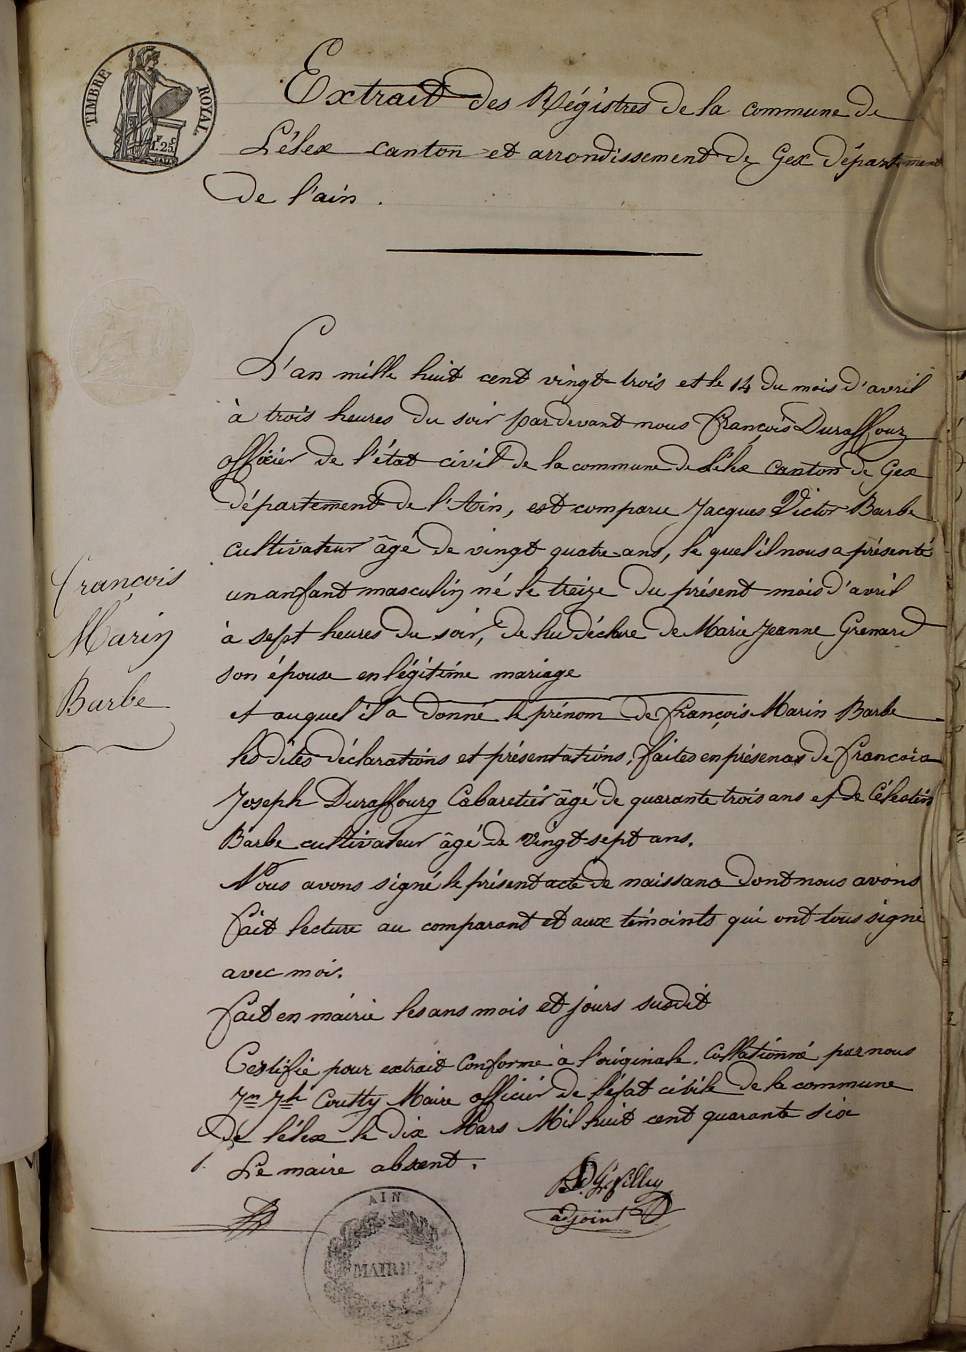 TIMBRE ROYAL
1.25
Extrait des Régistres de la commune de
Lélex canton et arrondissement de Gex département
de l'ain.
L'an mille huit cent vingt-trois et le 14 du mois d'avril
à trois heures du soir pardevant nous françois Duraffourg
officier de l'état civil de la commune de Lélex canton de Gex
département de l'Ain, est comparu Jacques Victor Barbe
cultivateur âgé de vingt quatre ans, le quel il nous a présenté
un anfant masculin né le treize du présent mois d'avril
à sept heures du soir, de lui déclare de Marie Jeanne Grenard
son épouse en légitime mariage
et auquel il a donné le prénom de françois Marin Barbe
François
Marin
Barbe
les dites déclarations et présentations, faites en présence de François
Joseph Duraffourg Cabaretier âgé de quarante trois ans et de Célestin
Barbe cultivateur âgé de vingt-sept ans.
Nous avons signé le présent acte de naissance dont nous avons
fait lecture au comparant et aux témoints qui ont tous signé
avec moi.
fait en mairie les ans mois et jours susdit
Certifié pour extrait conforme à l'originale. Collationné par nous
Coutty Maire officier de l'état civile de la commune
de Lélex le dix Mars Mil huit cent quarante six
Le maire absent.
adjoint
AIN
MAIRIE